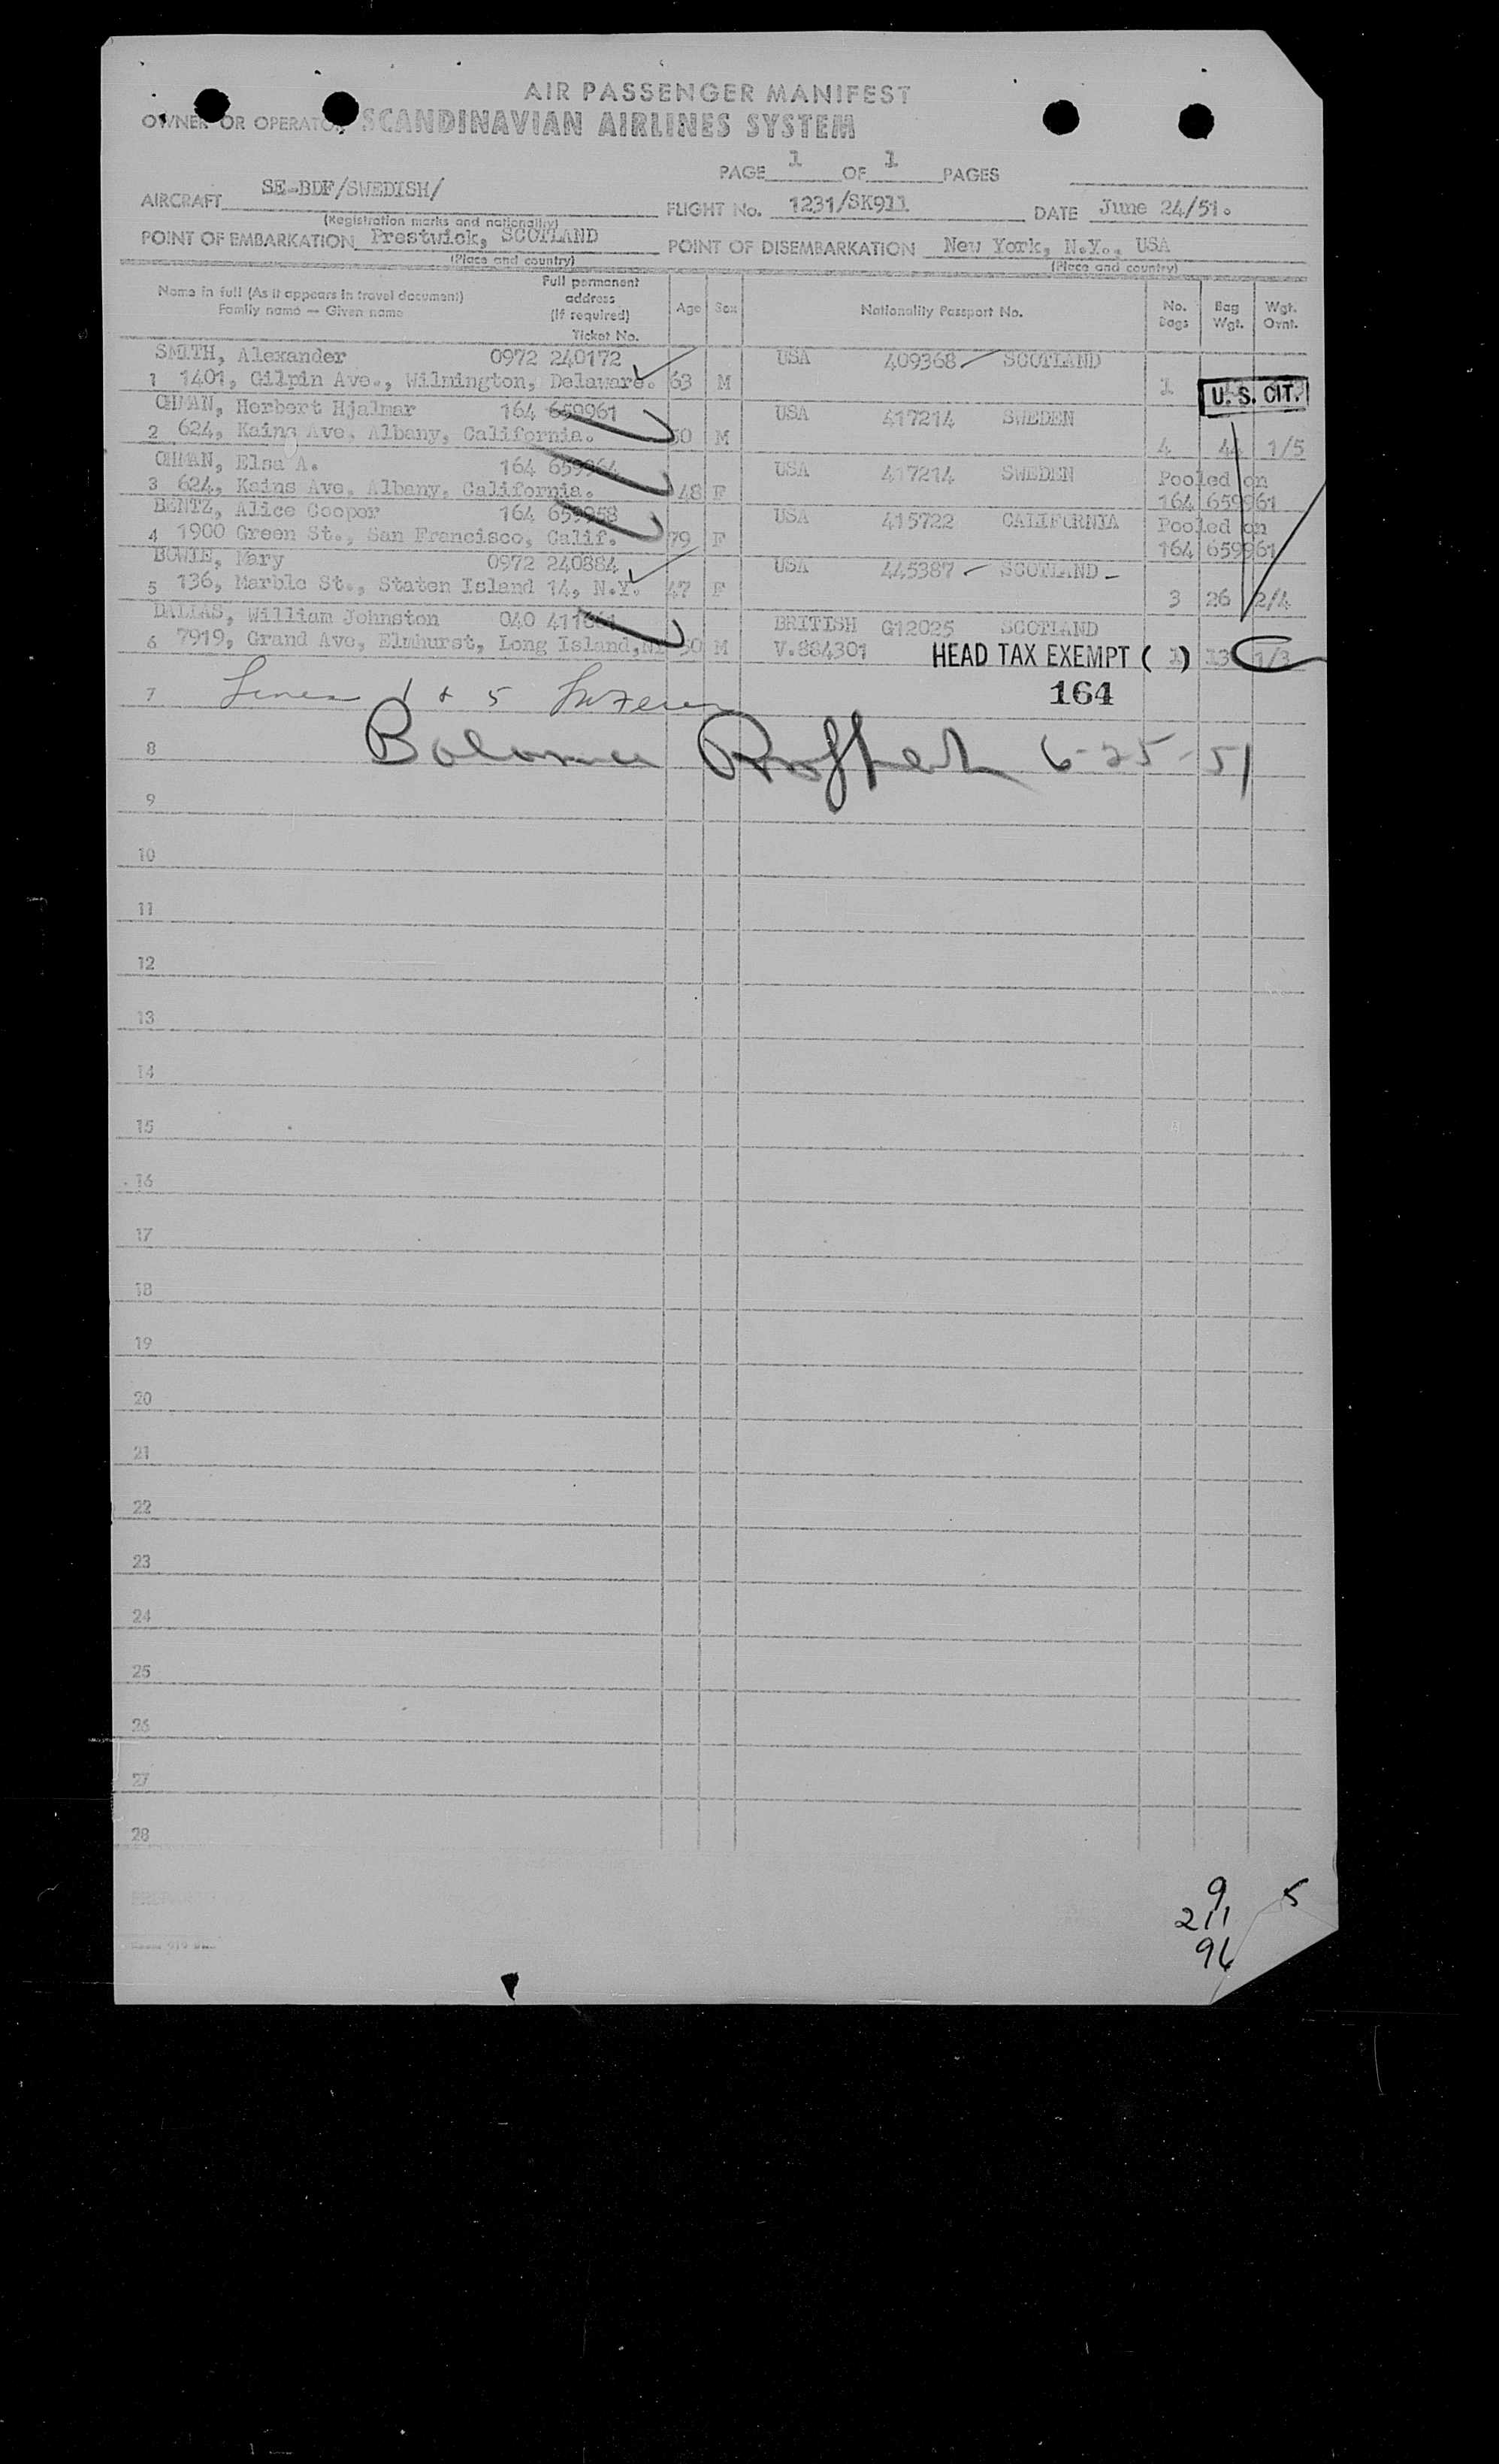 AIR PASSENGER MANIFEST
OWNER OR OPERATOR SCANDINAVIAN AIRLINES SYSTEM
PAGE 1 OF 1 PAGES
AIRCRAFT SE-BDF/SWEDISH/ FLIGHT No. 1231/SK911 DATE June 24/51.
(Registration marks and nationality)
POINT OF EMBARKATION Prestwick, SCOTLAND POINT OF DISEMBARKATION New York, N.Y., USA
(Place and country) (Place and country)
Name in full (As it appears in travel document) Family name — Given name
Full permanent address (If required) Ticket No.
Age Sex Nationality Passport No. No. Bags Bag Wgt. Wgt. Ovnt.
SMITH, Alexander 0972 240172 USA 409368 SCOTLAND
1 1401, Gilpin Ave., Wilmington, Delaware. 63 M 1
U. S. CIT.
OHMAN, Herbert Hjalmar 164 659961 USA 417214 SWEDEN
2 624, Kains Ave, Albany, California. 50 M 4 44 1/5
OHMAN, Elsa A. 164 659964 USA 417214 SWEDEN Pooled on
3 624, Kains Ave, Albany, California. 48 F 164 659961
BENTZ, Alice Cooper 164 659958 USA 415722 CALIFORNIA Pooled on
4 1900 Green St., San Francisco, Calif. 79 F 164 659961
BOWIE, Mary 0972 240884 USA 445387 SCOTLAND
5 136, Marble St., Staten Island 14, N.Y. 47 F 3 26 2/4
DALLAS, William Johnston 040 411661 BRITISH G12025 SCOTLAND
6 7919, Grand Ave, Elmhurst, Long Island, NY 50 M V.884301 HEAD TAX EXEMPT ( 1 ) 13 1/3
7 Lines 1 & 5 164
8 6-25-51
9
10
11
12
13
14
15
16
17
18
19
20
21
22
23
24
25
26
27
28
9 5
211
96